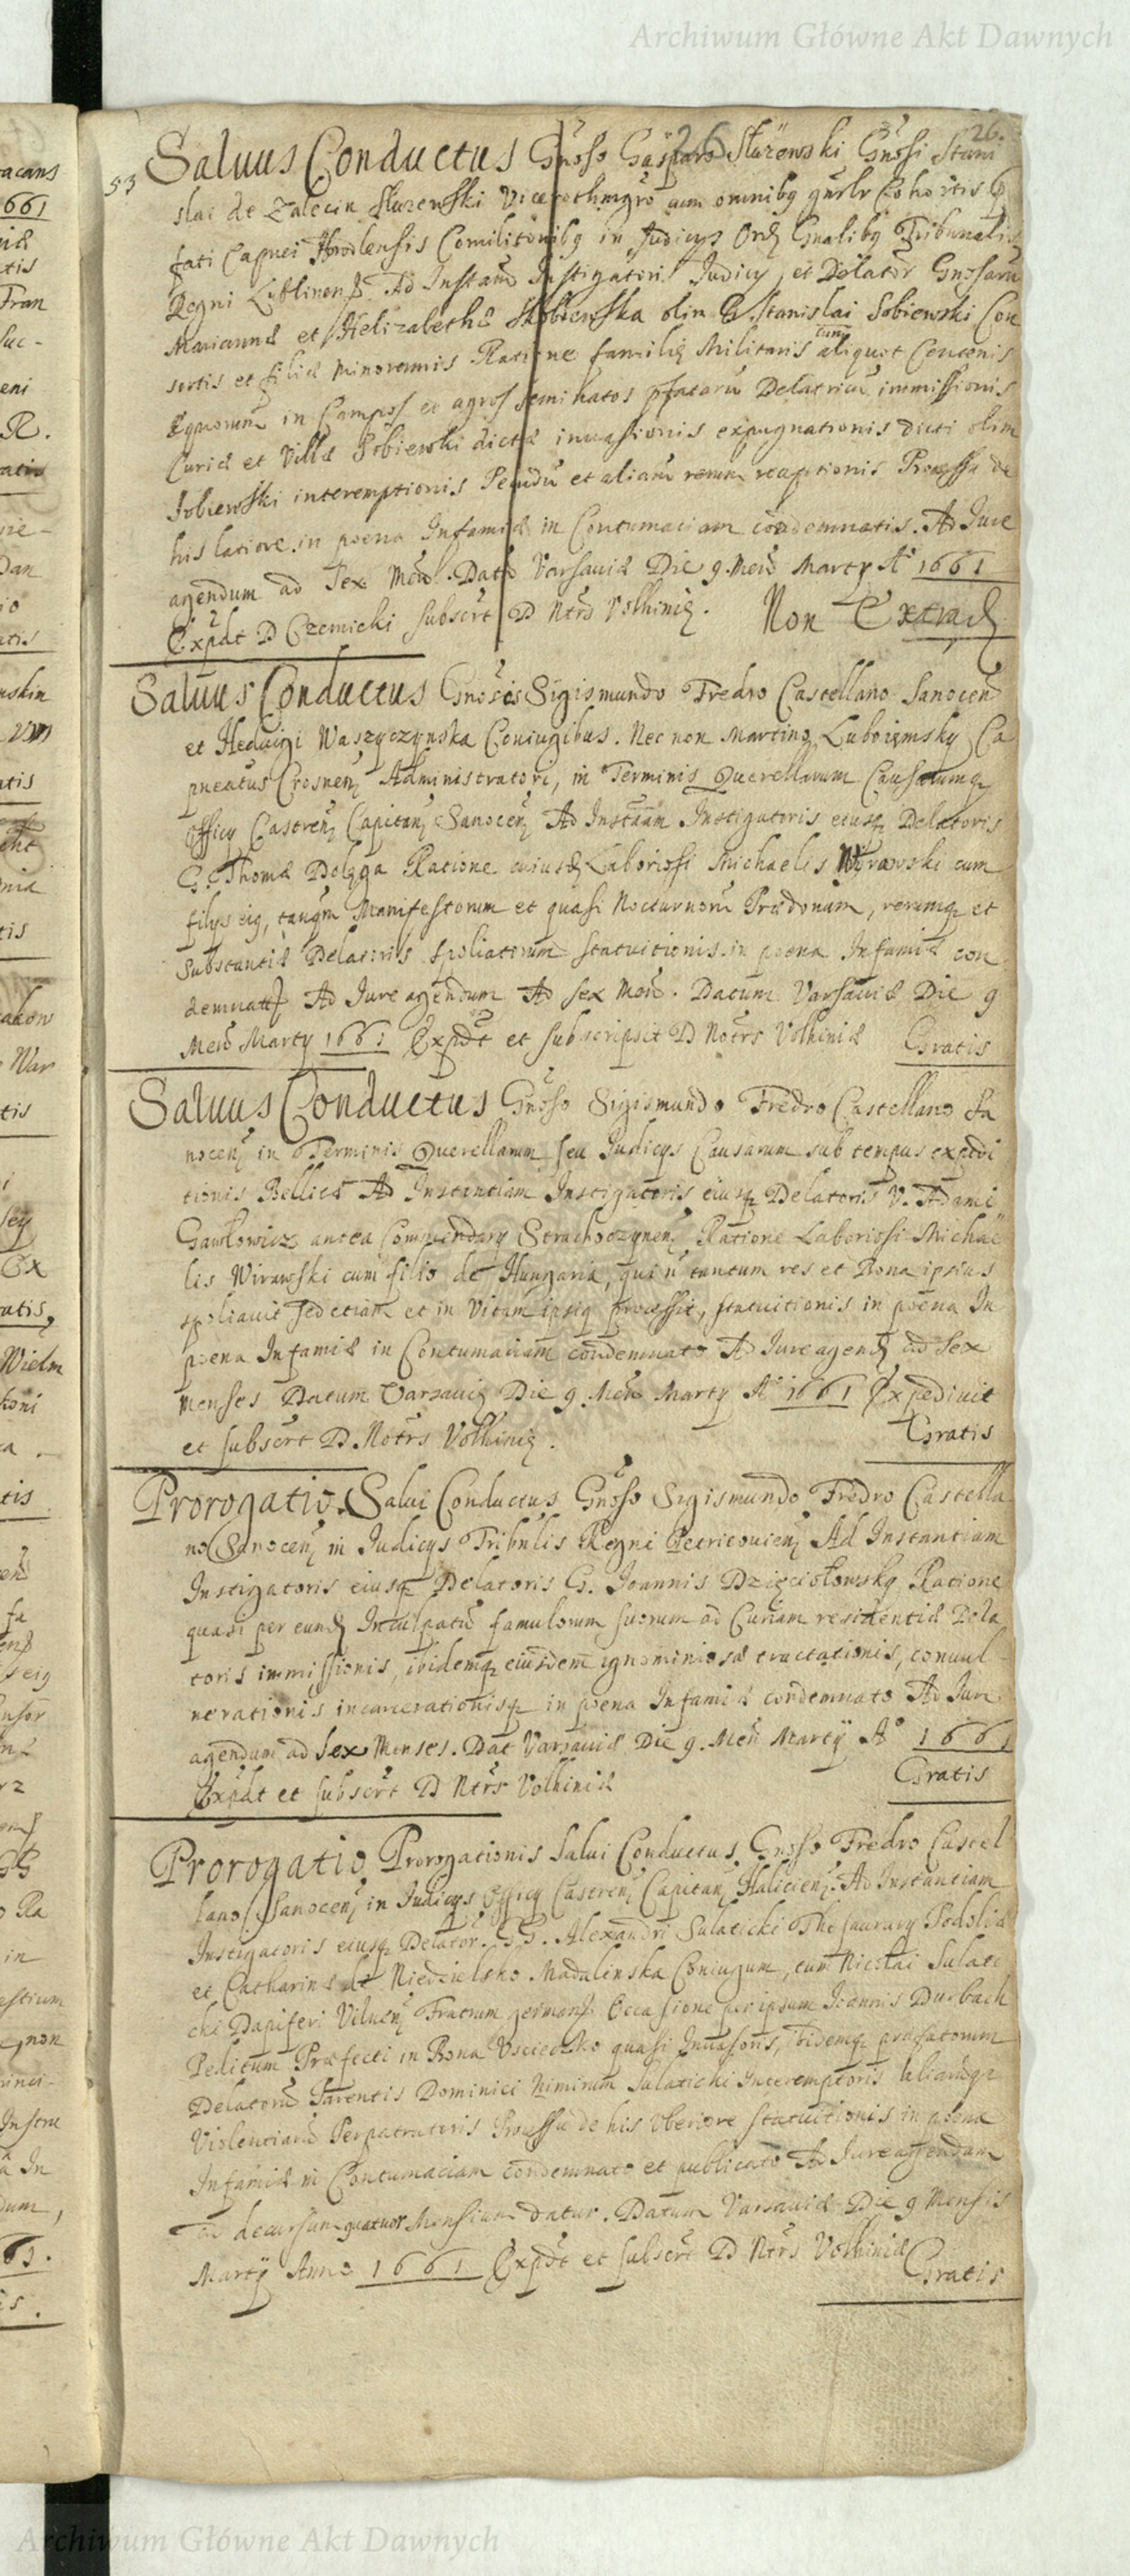 Archiwum Główne Akt Dawnych
26
26.
53 Saluus Conductus Gnoso Gasparo Słuzewski Gnosi Stani
slai de Zalecin Słuzewski Vicerothmgro cum omnibq Cohortis
fati Capnei Hrodlensis Comilitonibq in Judicys Ordi Gnalibq Tribunalis
Regni Lublinens Ad Instam Instigatoris Judicy et Delator Gnosaru
Mariannæ et Helizabethæ Skobiewska olim G. Stanislai Sobiewski Con
sortis et filiæ minorennis Ratione familię Militaris tum aliquot Centenis
Equorum in Campos et agros seminatos pfataru Delatricu immissionis
Curiæ et Villæ Sobiewski dictæ inuasionis expugnationis dicti olim
Sobiewski interemptionis Pecudu et aliaru rerum receptionis Processu de
his latiore in poena Infamiæ in Contumaciam condemnatis. Ad Jure
agendum ad Sex Men. Dat Varsauiæ Die 9. Men Marty Aº 1661
Expdt D Czernicki subscrt D Ntrs Volhinię. Non Extrad
Saluus Conductus Gnosis Sigismundo Fredro Castellano Sanocen
et Heduigi Waszyczynska Coniugibus. Nec non Martino Luboięmsky Ca
pneatus Crosnen Administratori, in Terminis Querellarum Causarumq
Officy Castren Capitan Sanocen Ad Instaam Instigatoris eiusq Delatoris
G. Thomæ Dolęga Ratione cuiusd Laboriosi Michaelis Wyrawski cum
filys eiq, tanqm Manifestorum et quasi Nocturnoru Prædonum, rerumq et
substantiæ Delatoris spoliatorum statuitionis in poena Infamiæ con
demnatis Ad Jure agendum Ad sex Men. Datum Varsauiæ Die 9
Men Marty 1661 Expdt et subscripsit D Notrs Volhiniæ Gratis
Saluus Conductus Gnoso Sigismundo Fredro Castellano Sa
nocen in Terminis Querellarum seu Judicys Causarum sub tempus expedi
tionis Bellicæ Ad Instantiam Instigatoris eiusq Delatoris V. Adami
Gawłowicz antea Commendary Strachoczynen Ratione Laboriosi Michae
lis Wirawski cum filio de Hungaria, qui n tantum res et Bona ipsius
spoliauit sed etiam et in Vitam ipsiq processit, statuitionis in poena In
poena Infamiæ in Contumaciam condemnato Ad Jure agend ad sex
menses Datum Varsauię Die 9. Men Marty Aº 1661 Expediuit
et subscrt D. Notrs Volhinię. Gratis
Prorogatio Salui Conductus Gnoso Sigismundo Fredro Castella
no Sanocen in Judicys Tribnlis Regni Petricouien Ad Instantiam
Instigatoris eiusq Delatoris G. Joannis Dzięciołowsky Ratione
quasi per eund Inculpatu famulorum suorum ad Curiam residentiæ Dela
toris immissionis, ibidemq eiusdem ignominiosæ tractationis, conuul
nerationis incarcerationisq in poena Infamiæ condemnato Ad Jure
agendum ad Sex Menses. Dat Varsauiæ Die 9. Men Martÿ Aº 1661
Expdt et subscrt D Ntrs Volhiniæ Gratis
Prorogatio Prorogationis Salui Conductus Gnoso Fredro Castel
lano Sanocen in Judicys Officy Castren Capitan Halicien. Ad Instantiam
Instigatoris eiusq Delator. GG. Alexandri Sulaticki Thesaurary Podoliæ
et Catharinæ de Niedzielsko Madalinska Coniugum, cum Nicolai Sulati
cki Dapiferi Vilnen Fratrum german Occasione per ipsum Joannis Durbach
Peditum Præfecti in Bona Vscieczko quasi Inuasoris, ibidemq præfatorum
Delatoru Parentis Dominici nimirum Sulaticki Interemptoris aliarumq
Violentiaru Perpatratoris Processu de his Vberiore statuitionis in poena
Infamiæ in Contumaciam condemnato et publicato Ad Jure agendum
decursum quatuor Mensium datur. Datum Varsauiæ Die 9 Mensis
Martÿ Anno 1661 Expdt et subscrt D Ntrs Volhiniæ Gratis
Archiwum Główne Akt Dawnych